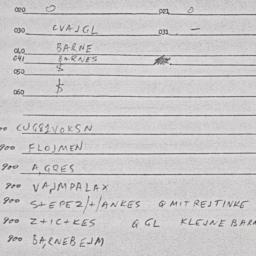 020 O 021 O
030 CVAJGL 031 —
040 BARNE
041 BARNES
050 $
060 $
CUG81VOKSN
900 FLOJMEN
900 A, GRES
900 VAJMPALAX
900 S+EPEZ/+/ANKES & MITREJTINKE
900 Z+IC+KES & GL KLEJNE BARN
900 BARNEBEJM